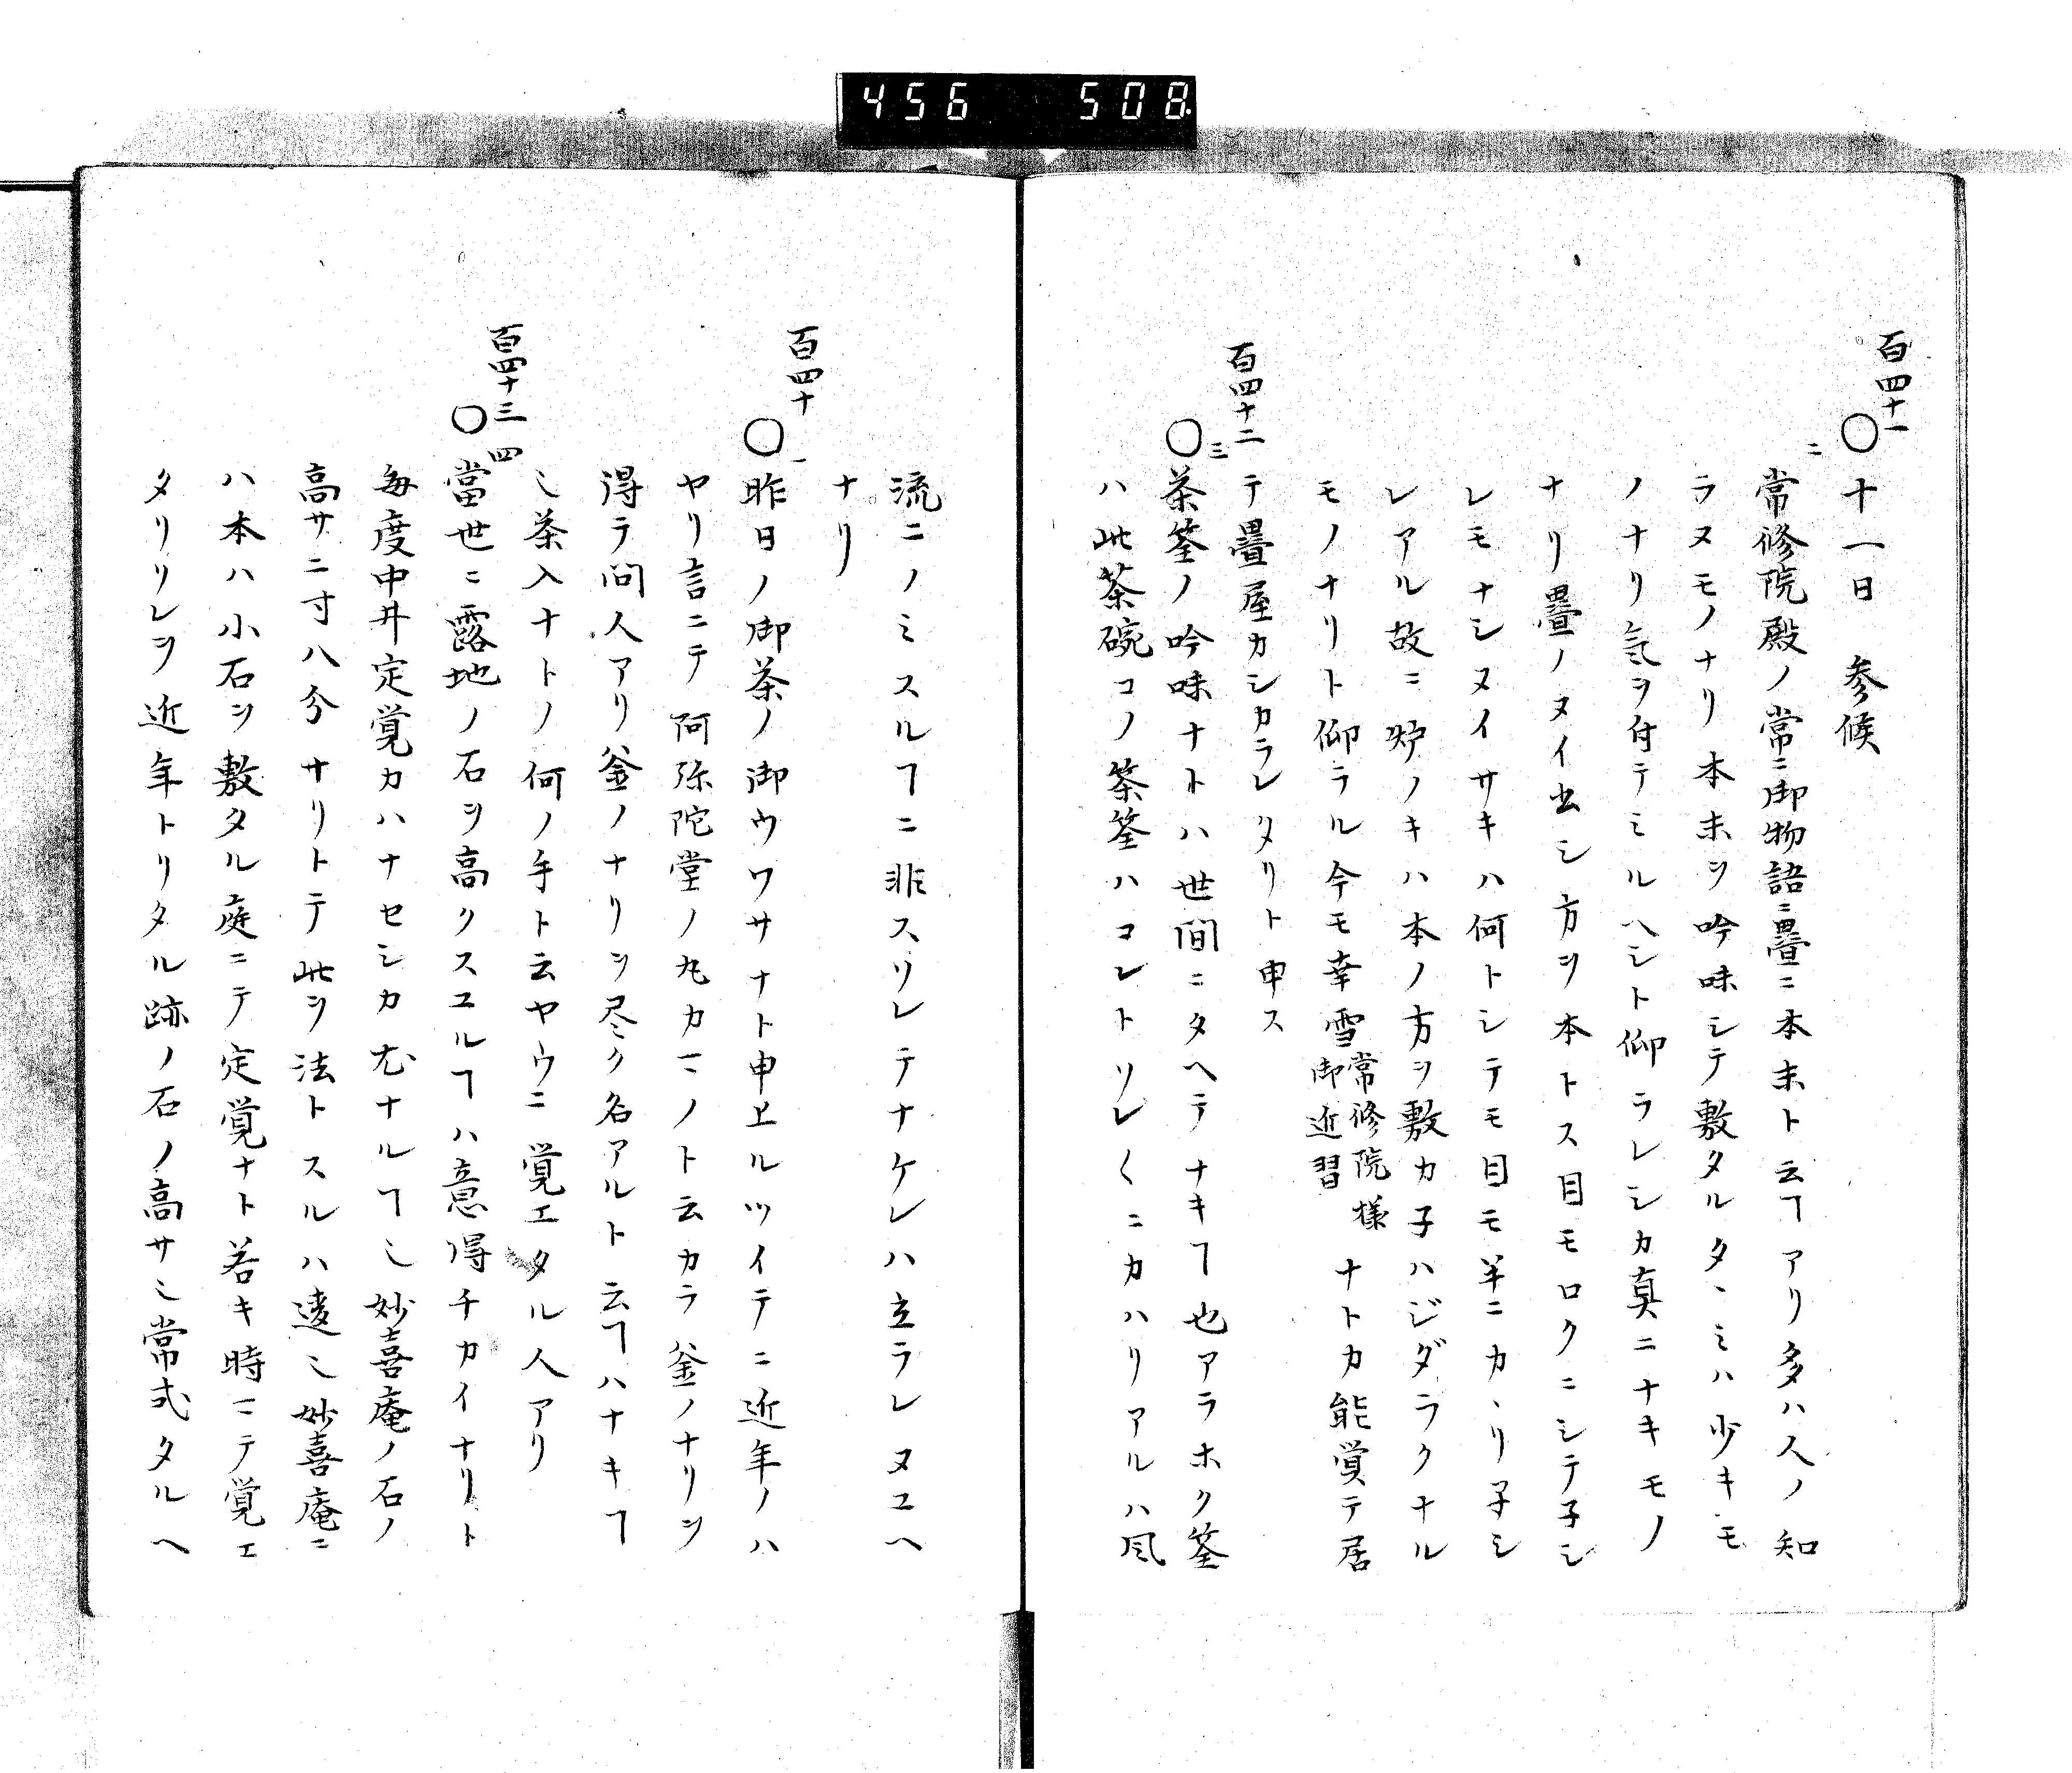 456 508
百四十一
○十一日 参候
二
常修院殿ノ常ニ御物語ニ疊ニ本末ト云ヿアリ多ハ人ノ知
ラヌモノナリ本末ヲ吟味シテ敷タルタヽミハ少キモ
ノナリ気ヲ付テミルヘシト仰ラレシカ真ニナキモノ
ナリ疊ノヌイ出シ方ヲ本トス目モロクニシテ子シ
レモナシヌイサキハ何トシテモ目モ半ニカヽリ子シ
レアル故ニ炉ノキハ本ノ方ヲ敷カ子ハジダラクナル
モノナリト仰ラル今モ幸雪常修院様御近習ナトカ能覚テ居
テ疊屋カシカラレタリト申ス
百四十二
三
○茶筌ノ吟味ナトハ世間ニタヘテナキヿ也アラホク筌
ハ此茶碗コノ茶筌ハコレトソレ〱ニカハリアルハ風
流ニノミスルヿニ非スソレテナケレハ立ラレヌユヘ
ナリ
百四十
一
○昨日ノ御茶ノ御ウワサナト申上ルツイテニ近年ノハ
ヤリ言ニテ阿弥陀堂ノ丸カマノト云カラ釜ノナリヲ
得テ問人アリ釜ノナリヲ尽ク名アルト云ヿハナキヿ
ミ茶入ナトノ何ノ手ト云ヤウニ覚エタル人アリ
百四十三
四
○當世ニ露地ノ石ヲ高クスユルヿハ意得チカイナリト
毎度中井定覚カハナセシカ尤ナルヿミ妙喜庵ノ石ノ
高サニ寸八分ナリトテ此ヲ法トスルハ違ミ妙喜庵ニ
ハ本ハ小石ヲ敷タル庭ニテ定覚ナト若キ時マテ覚エ
タリソレヲ近年トリタル跡ノ石ノ高サミ常式タルヘ